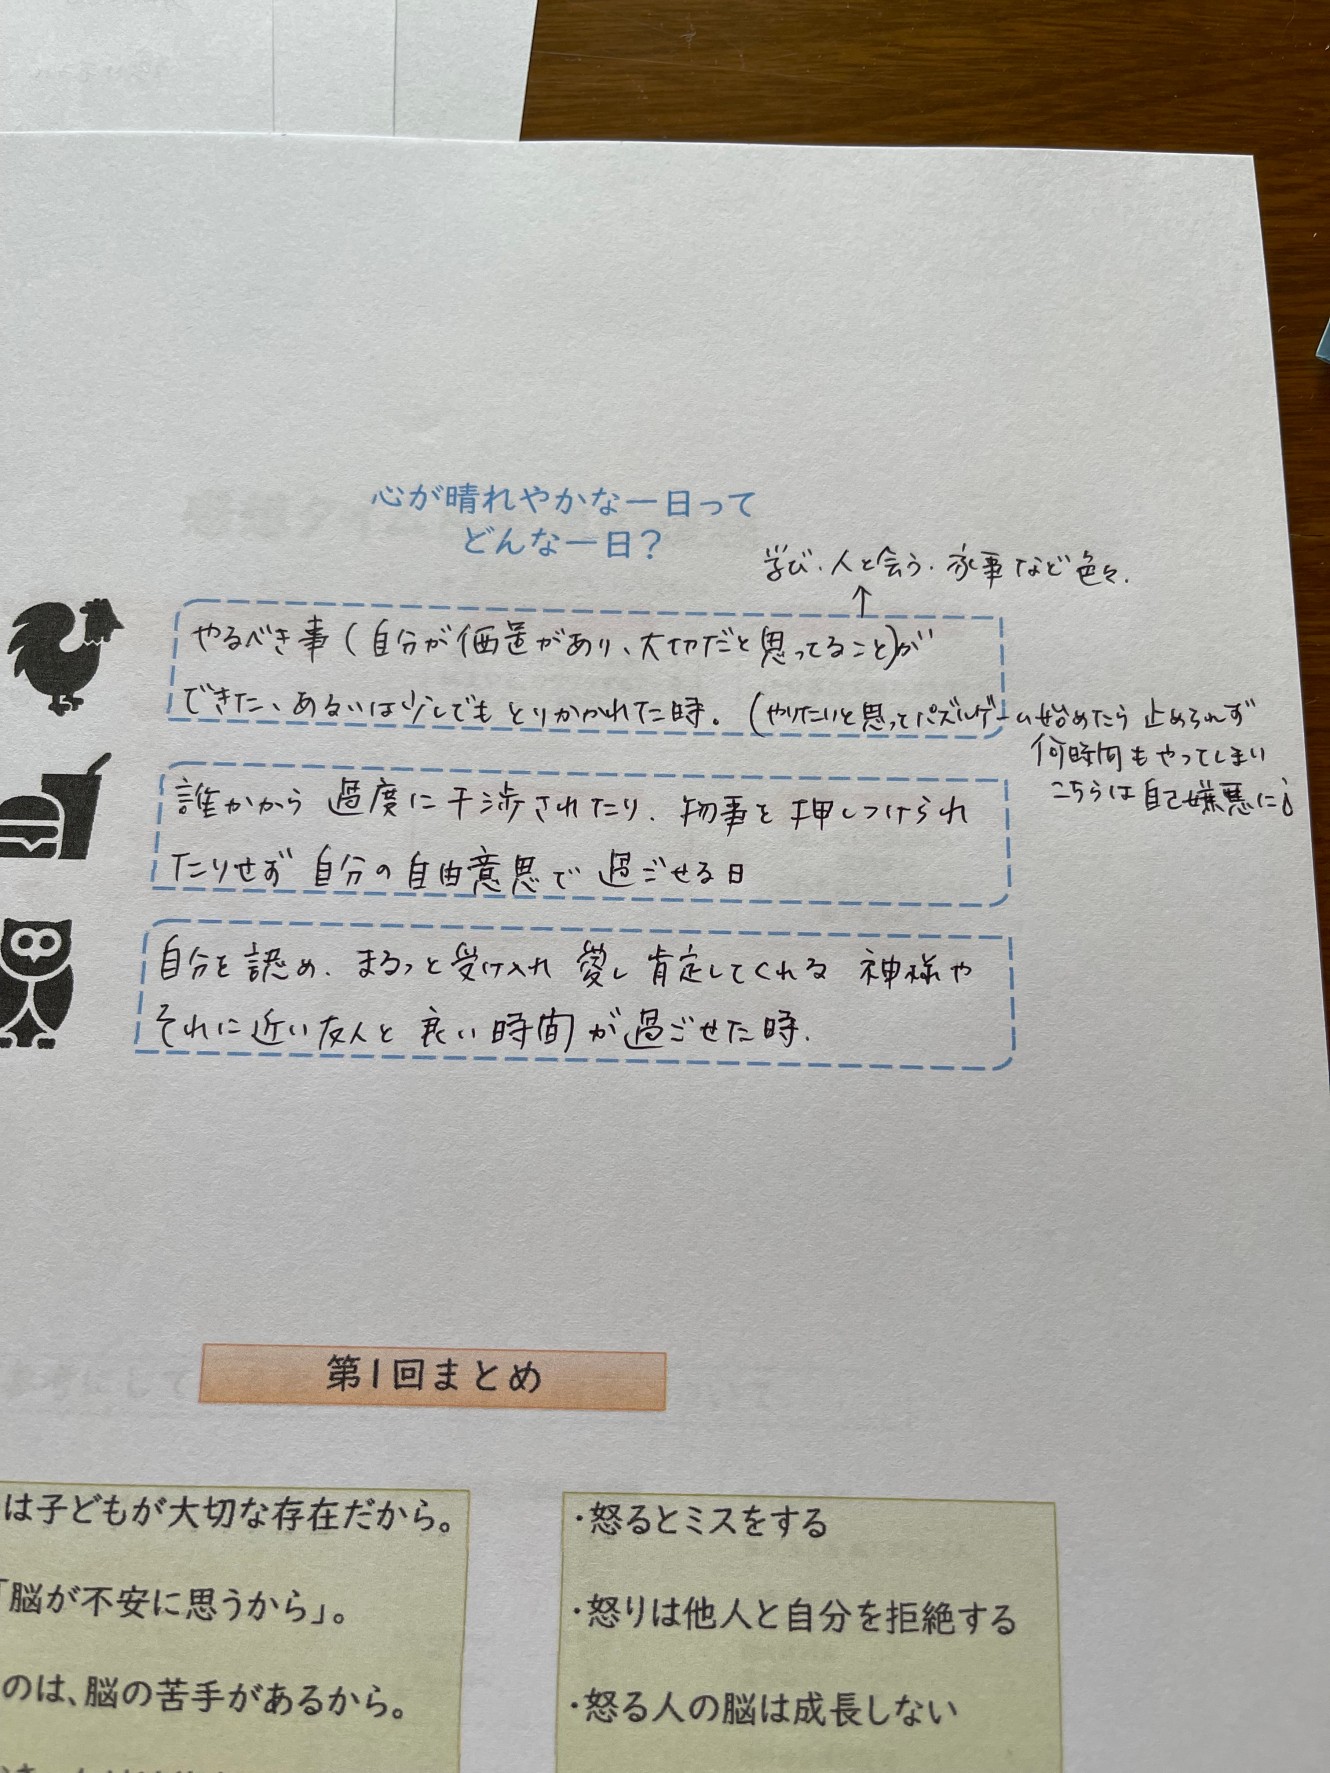 心が晴れやかな一日って
どんな一日？
学び、人と会う、家事など色々.
↑
やるべき事(自分が価置があり、大切だと思ってること)が
できた、あるいは少しでもとりかかれた時。(やりたいと思ってパズルゲーム始めたら止められず
何時間もやってしまい
こちらは自己嫌悪に
誰かから過度に干渉されたり、物事を押しつけられ
たりせず自分の自由意思で過ごせる日
自分を認め、まるっと受け入れ愛し肯定してくれる神様や
それに近い友人と良い時間が過ごせた時.
第1回まとめ
は子どもが大切な存在だから。
「脳が不安に思うから」。
のは、脳の苦手があるから。
・怒るとミスをする
・怒りは他人と自分を拒絶する
・怒る人の脳は成長しない